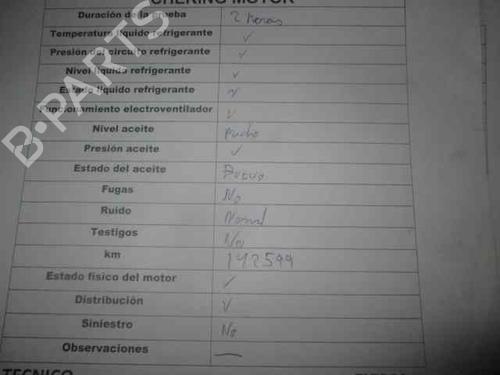 CHEKING MOTOR
Duración de la prueba 2 horas
Temperatura líquido refrigerante ✓
Presión del circuito refrigerante ✓
Nivel líquido refrigerante ✓
Estado líquido refrigerante ✓
Funcionamiento electroventilador ✓
Nivel aceite
Presión aceite ✓
Estado del aceite
Fugas No
Ruido Normal
Testigos No
km 142599
Estado físico del motor ✓
Distribución ✓
Siniestro No
Observaciones —
TECNICO
B-PARTS